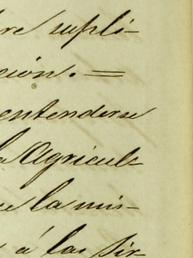 re supli-
ción.=
entenderse
la Agricul-
ue la mis-
s á las Sir